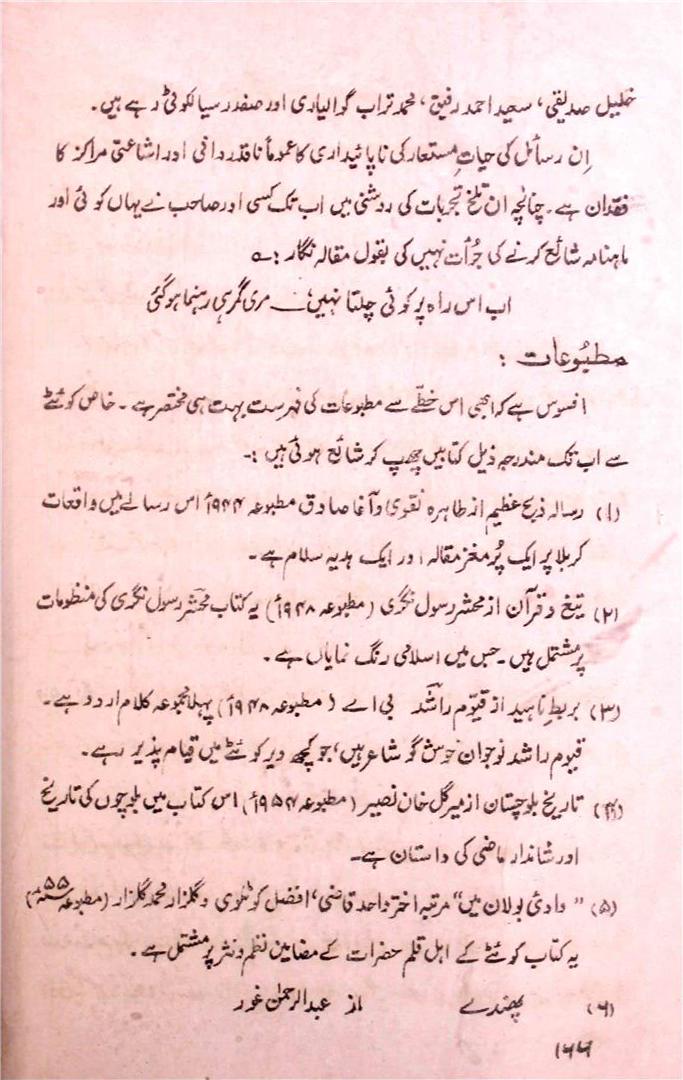 خلیل صدیقی، سعید احمد رفیق، محمد تراب گوالیاری اور صفدر سیالکوٹی رہے ہیں۔
اِن رسائل کی حیاتِ مستعار کی ناپائیداری کا عموماً ناقدردانی اور اشاعتی مراکز کا
فقدان ہے۔ چنانچہ ان تلخ تجربات کی روشنی میں اب تک کسی اور صاحب نے یہاں کوئی اور
ماہنامہ شائع کرنے کی جُرأت نہیں کی بقول مقالہ نگار :۔ ؎
اب اس راہ پر کوئی چلتا نہیں، — مری گمرہی رہنما ہو گئی
مطبُوعات :
افسوس ہے کہ ابھی اس خطّے سے مطبوعات کی فہرست بہت ہی مختصر ہے۔ خاص کوئٹے
سے اب تک مندرجہ ذیل کتابیں چھپ کر شائع ہوئی ہیں :۔
(۱) رسالہ ذبحِ عظیم از طاہرہ نقوی و آغا صادق مطبوعہ ۱۹۴۴ء اس رسالے میں واقعات
کربلا پر ایک پُر مغز مقالہ اور ایک ہدیہ سلام ہے۔
(۲) تیغ و قرآن از محشر رسول نگری (مطبوعہ ۱۹۴۸ء) یہ کتاب محشر رسول نگری کی منظومات
پر مشتمل ہیں۔ جس میں اسلامی رنگ نمایاں ہے۔
(۳) بربطِ ناہید از قیوم راشد بی اے (مطبوعہ ۱۹۴۸ء) پہلا مجموعہ کلام اردو ہے۔
قیوم راشد نوجوان خوش گو شاعر ہیں، جو کچھ دیر کوئٹے میں قیام پذیر رہے۔
(۴) تاریخ بلوچستان از میر گل خان نصیر (مطبوعہ ۱۹۵۴ء) اس کتاب میں بلوچوں کی تاریخ
اور شاندار ماضی کی داستان ہے۔
(۵) "وادیٔ بولان میں" مرتبہ اختر واحد قاضی، افضل کوٹلوی و گلزار محمد گلزار (مطبوعہ ۵۵ء)
یہ کتاب کوئٹے کے اہل قلم حضرات کے مضامین نظم و نثر پر مشتمل ہے۔
(۶) پھندے از عبدالرحمٰن غور
۱۶۶